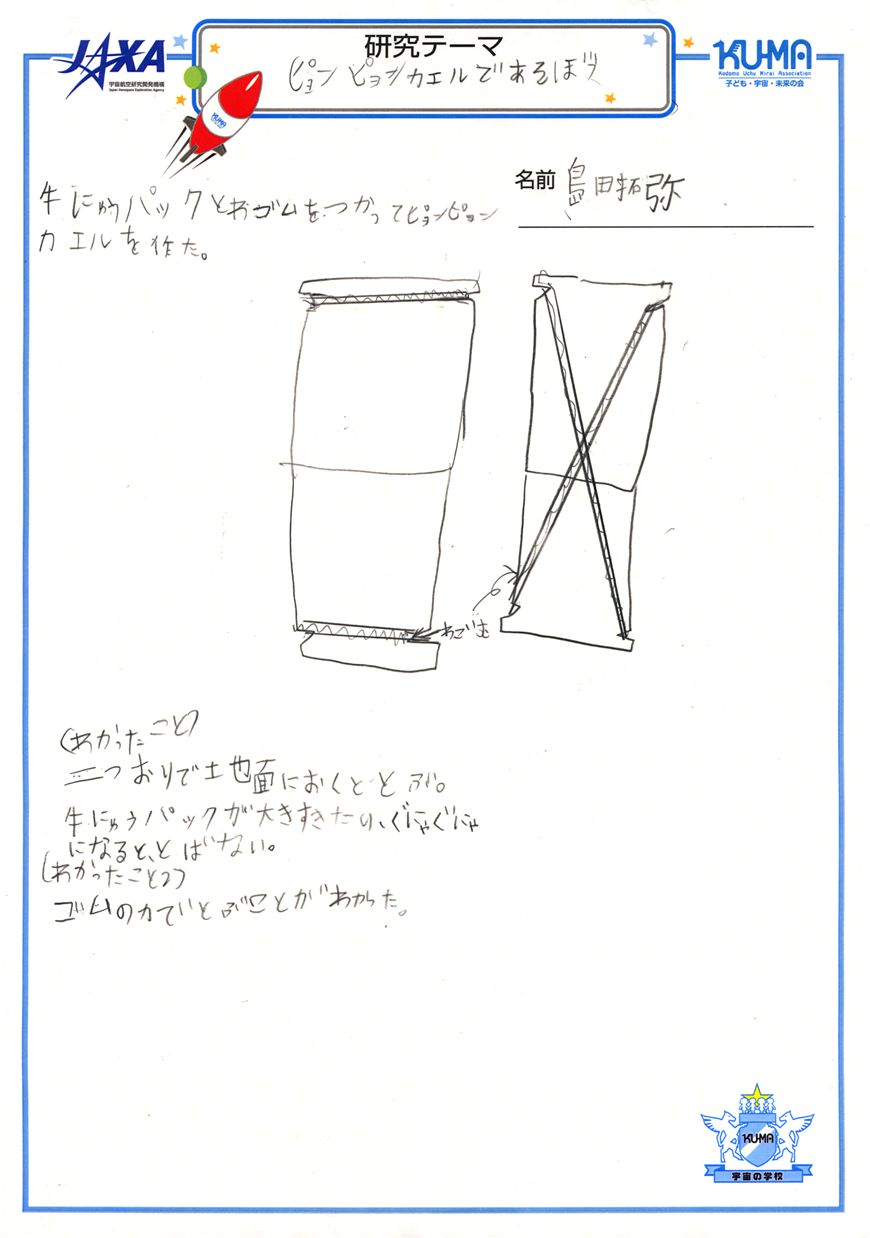 JAXA
宇宙航空研究開発機構
Japan Aerospace Exploration Agency
研究テーマ
ピョンピョンカエルであそぼう
KUMA
Kodomo Uchu Mirai Association
子ども・宇宙・未来の会
KUMA
名前 島田拓弥
牛にゅうパックとわゴムをつかってピョンピョン
カエルを作た。
わごむ
(わかったこと)
二つおりで土也面におくととぶ。
牛にゅうパックが大きすきたり、ぐにゃぐにゃ
になると、とばない。
(わかったこと2)
ゴムの力でとぶことがわかった。
KUMA
宇宙の学校